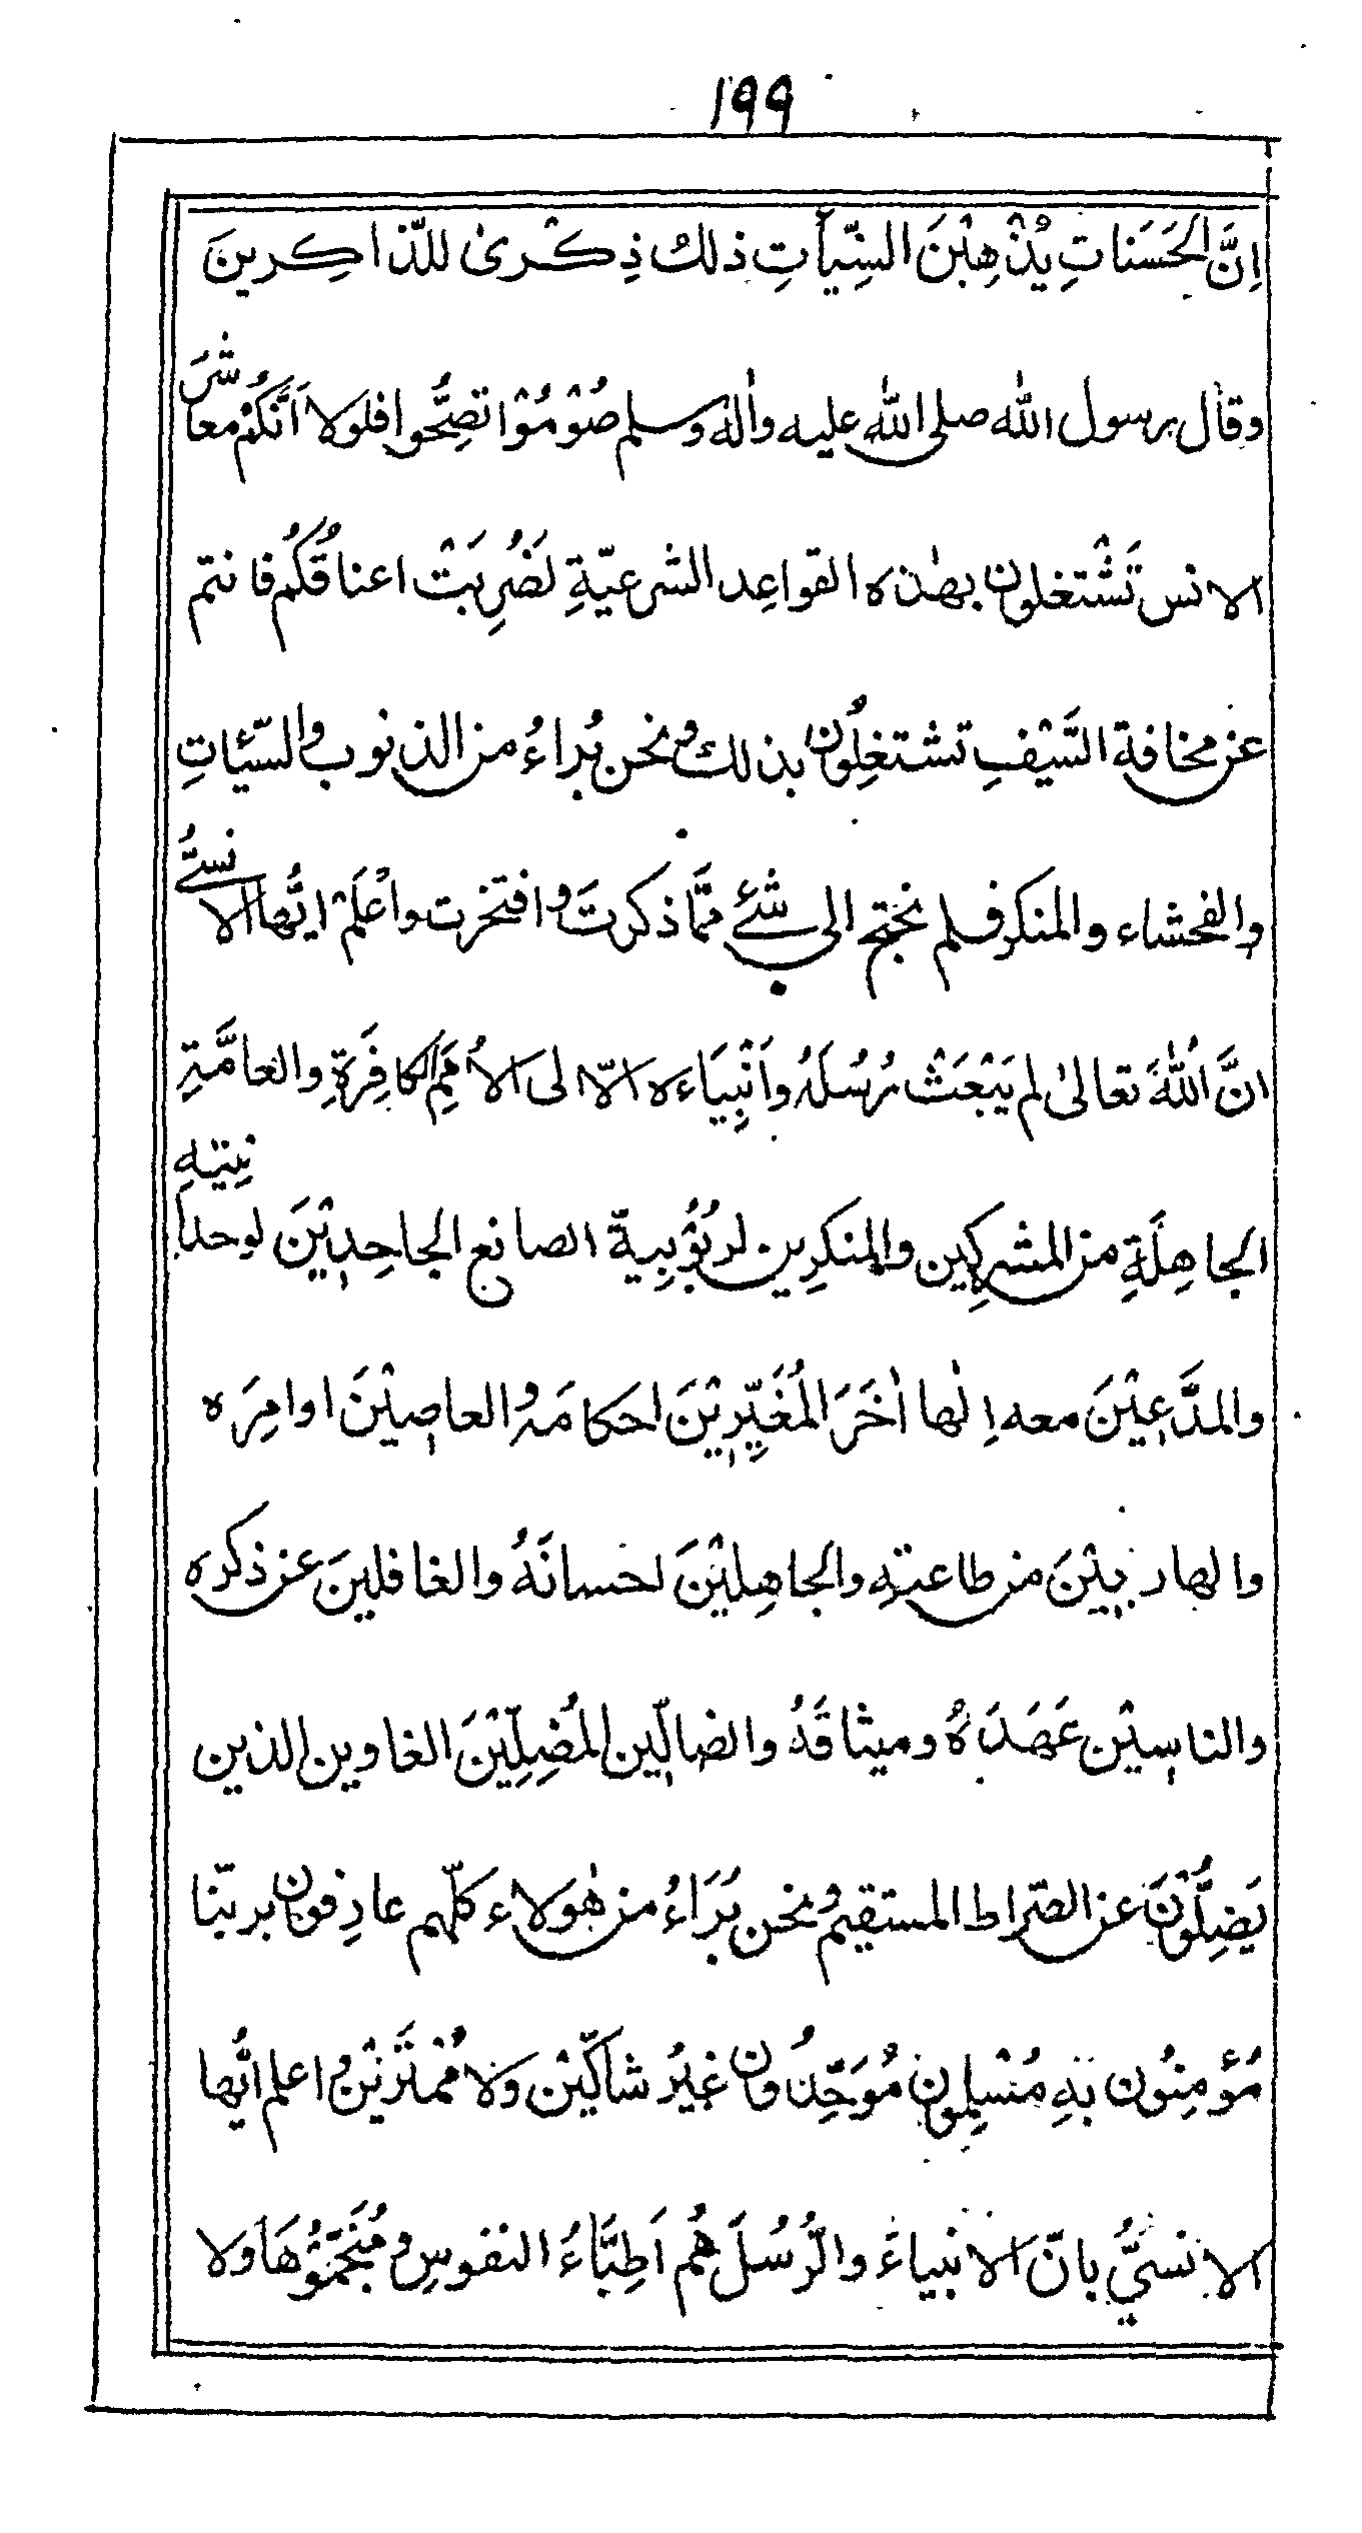 ١٩٩
اِنَّ الحَسَنَاتِ يُذْهِبْنَ السَّيِّأٰتِ ذٰلكَ ذِكْرىٰ للذّاكِرينَ
وقال رسول اللّٰه صلى اللّٰه عليه واٰلهٖ وسلم صُوْمُوْا تصِحُّوا فلولا اَنَّكُمْ معاشَ
الانس تَشْتغلون بهٰذه القواعِد الشرعيّةِ لَضُرِبَتْ اعناقُكُم فانتم
عن مخافة السَّيْفِ تشتغِلُون بذلك ونحن بُراءُ من الذنوب والسّيّئاتِ
والفحشاء والمنكر فلم نحتج الى شئٍ ممّا ذكرتَ وافتخرت واعْلَمْ ايُّها الانسىُّ
انَّ اللّٰهَ تعالىٰ لم يَبْعَثْ رُسُلَهُ واَنْبِيَاءَه الّا الى الاُمَمِ الكافِرَةِ والعامَّةِ
الجاهِلَةِ من المشركِين والمنكرِين لرُبُوبِيةِ الصانع الجاحِدِيْنَ لوحدانِيتهِ
والمدَّعِيْنَ معه اِلٰها اٰخَرَ المُغَيِّرِيْنَ احكامَهُ والعاصِيْنَ اوامِرَه
والهاربِيْنَ من طاعتهِ والجاهِلِيْنَ احسانَهُ والغافلينَ عن ذكره
والناسِيْن عَهَدَهُ وميثاقَهُ والضالّين المُضِلِّيْنَ الغاوين الذين
يَضِلُّوْنَ عن الصّراط المستقيم ونحن بُرَاءُ من هٰؤلاء كلّهم عارِفون بربّنا
مُؤمِنُون بهِ مُسْلِمون مُوَحِّدُون غيرُ شاكّيْن ولا مُمْتَرَيْن واعلم ايُّها
الانسىُّ بانّ الانبياءَ والرُّسُلَ هُم اَطِبَّاءُ النفوسِ ومُنَجِّمُوْهَا ولا